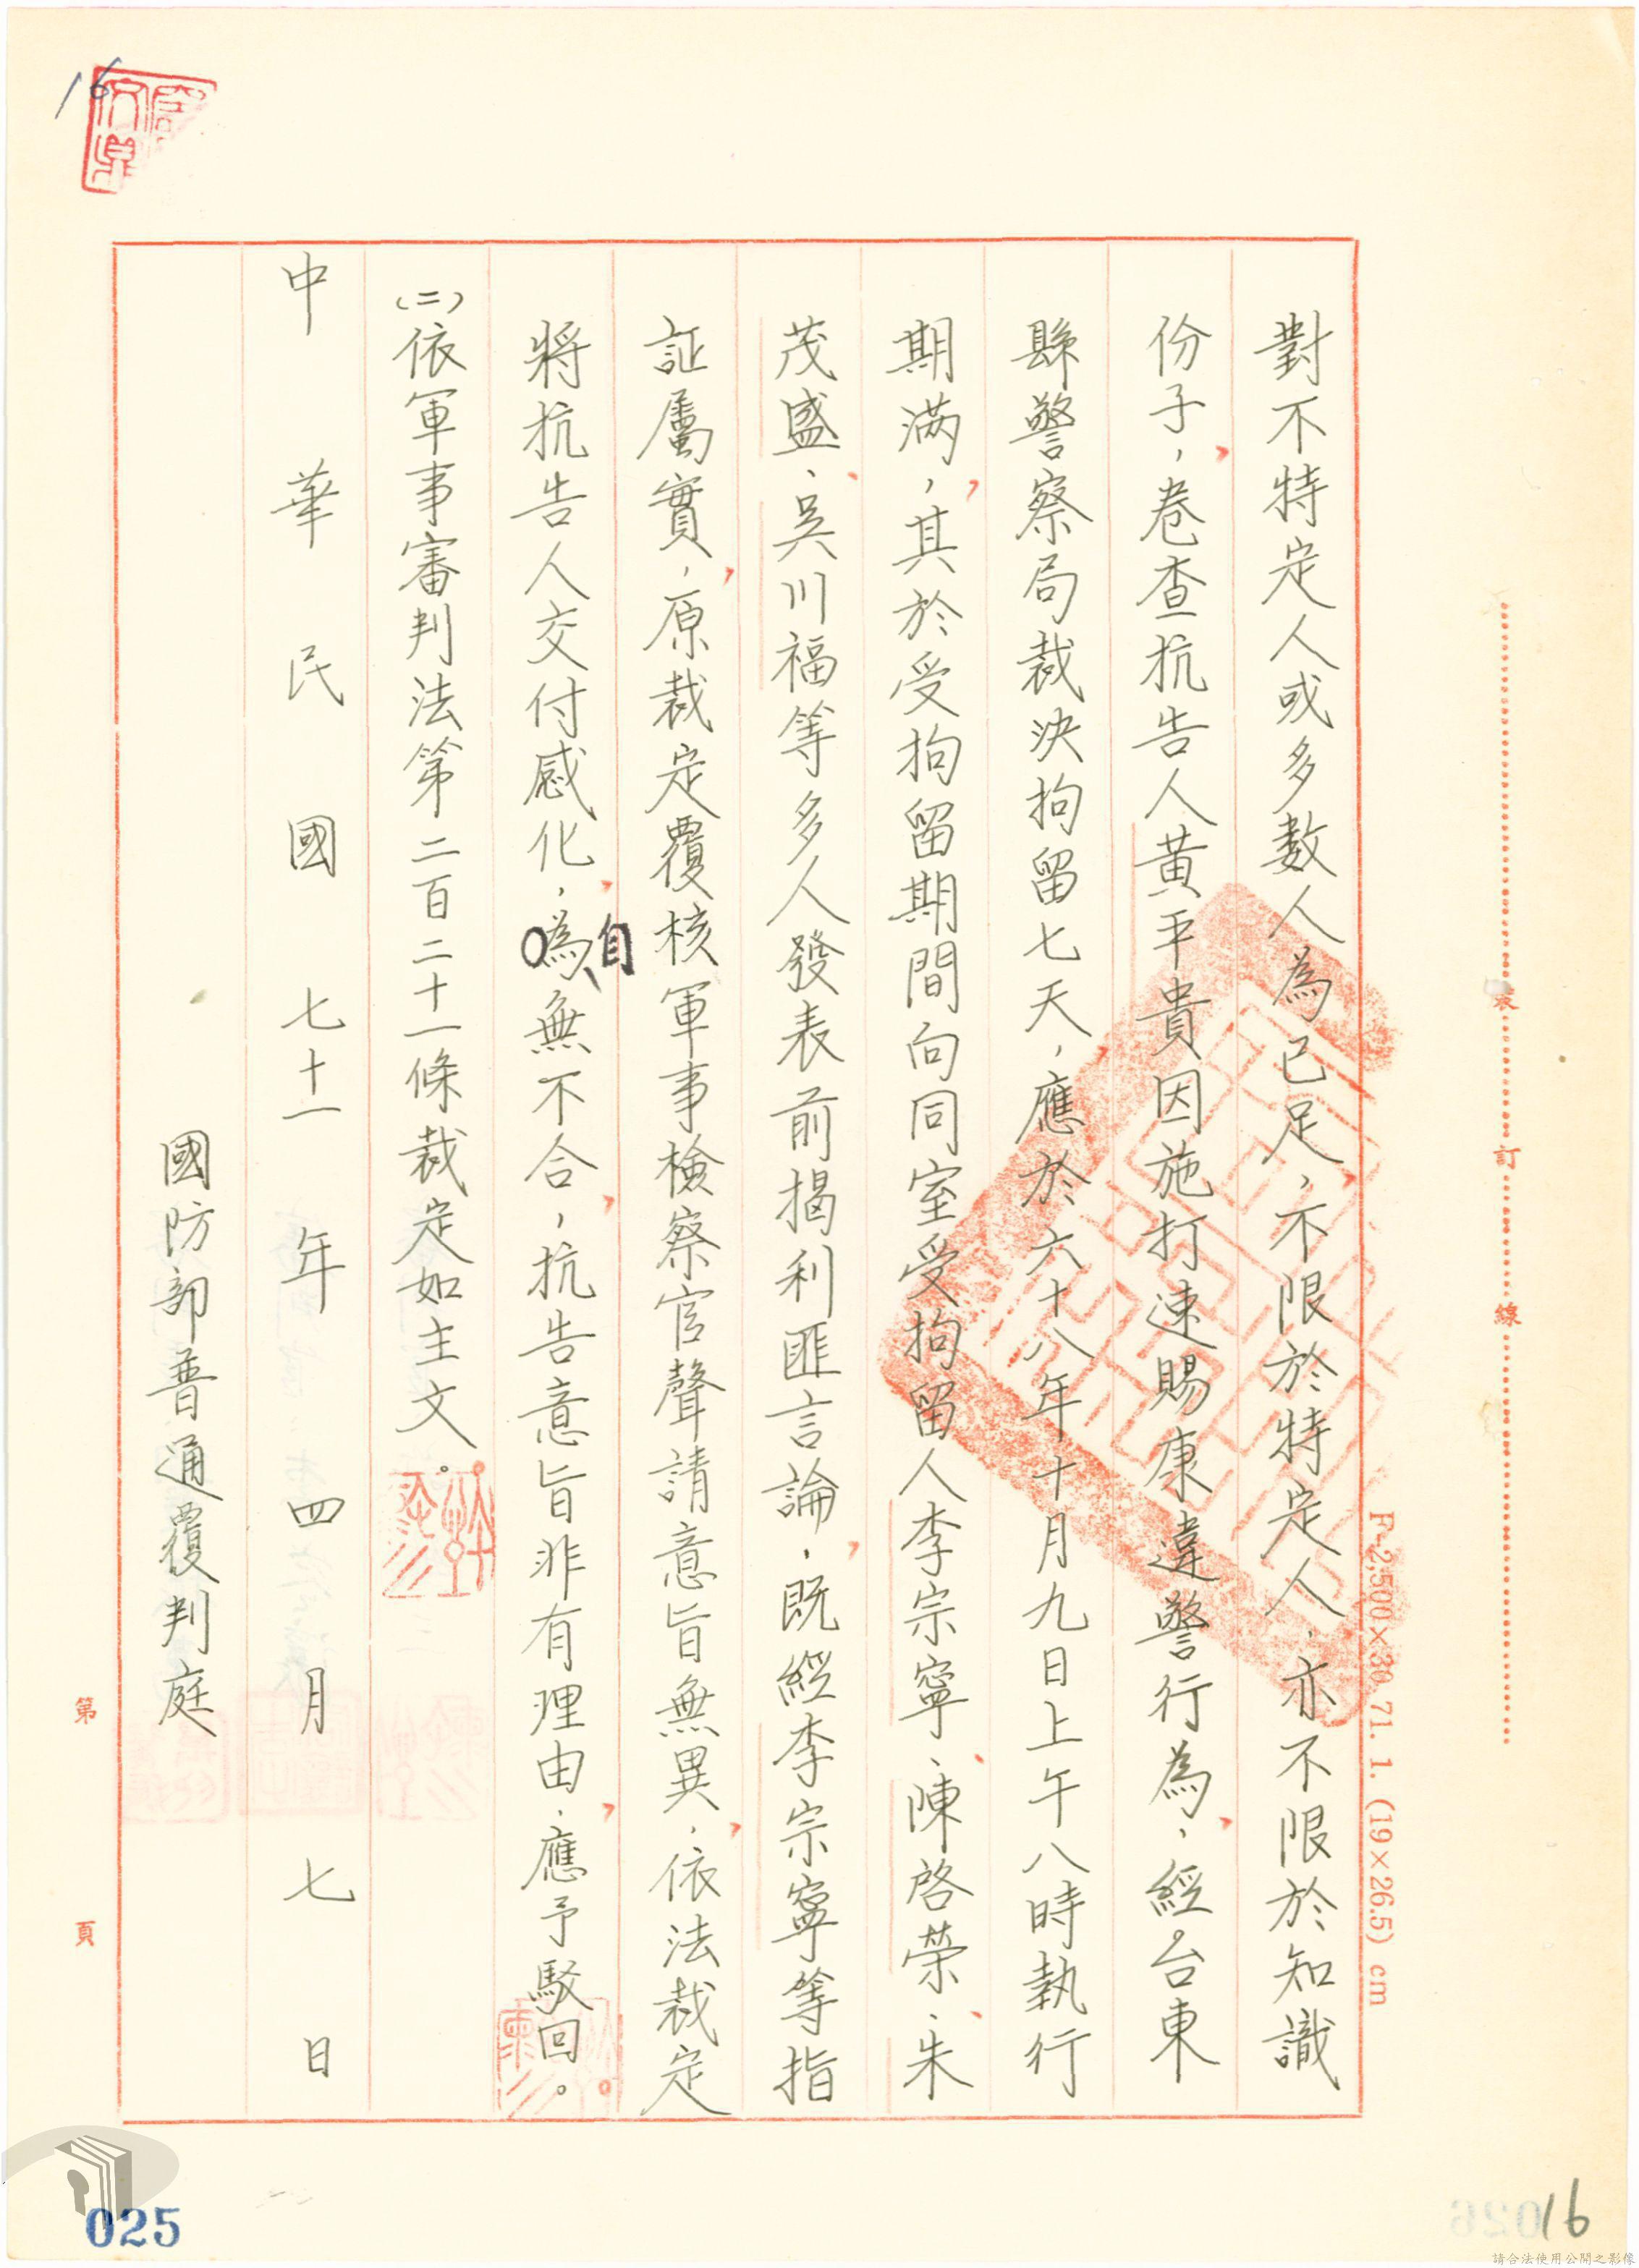 16
對不特定人或多數人為已足，不限於特定人，亦不限於知識
份子，卷查抗告人黃平貴因施打速賜康違警行為，經台東
縣警察局裁決拘留七天，應於六十八年十月九日上午八時執行
期滿，其於受拘留期間向同室受拘留人李宗寧、陳啓榮、朱
茂盛、吳川福等多人發表前揭利匪言論，既經李宗寧等指
証屬實，原裁定覆核軍事檢察官聲請意旨無異，依法裁定
將抗告人交付感化，自為無不合，抗告意旨非有理由，應予駁回。
(二)依軍事審判法第二百二十一條裁定如主文。
中華民國七十一年四月七日
國防部普通覆判庭
裝訂線
F-2,500×30 71. 1. (19×26.5) cm
第 頁
025
16
請合法使用公開之影像